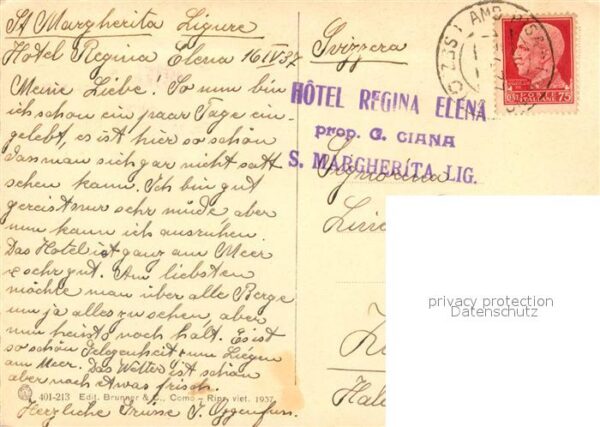 St Margherita Ligure
Hotel Regina Elena 16 IV 37
Meine Liebe! So nun bin
ich schon ein paar Tage ein-
gelebt, es ist hier so schön
dass man sich gar nicht satt
sehen kann. Ich bin gut
gereist nur sehr müde, aber
nun kann ich ausruhen.
Das Hotel ist ganz am Meer
& sehr gut. Am liebsten
möchte man über alle Berge
um ja alles zu sehen, aber
nun heisst's noch halt. Es ist
so schön Gelegenheit zum Liegen
am Meer. Das Wetter ist schön
aber noch etwas frisch.
401-213 Edit. Brunner & C., Como - Ripr. viet. 1937
Herzliche Grüsse
Svizzera
HÔTEL REGINA ELENA
prop. G. CIANA
S. MARGHERITA LIG.
Signorina
75
privacy protection
Datenschutz